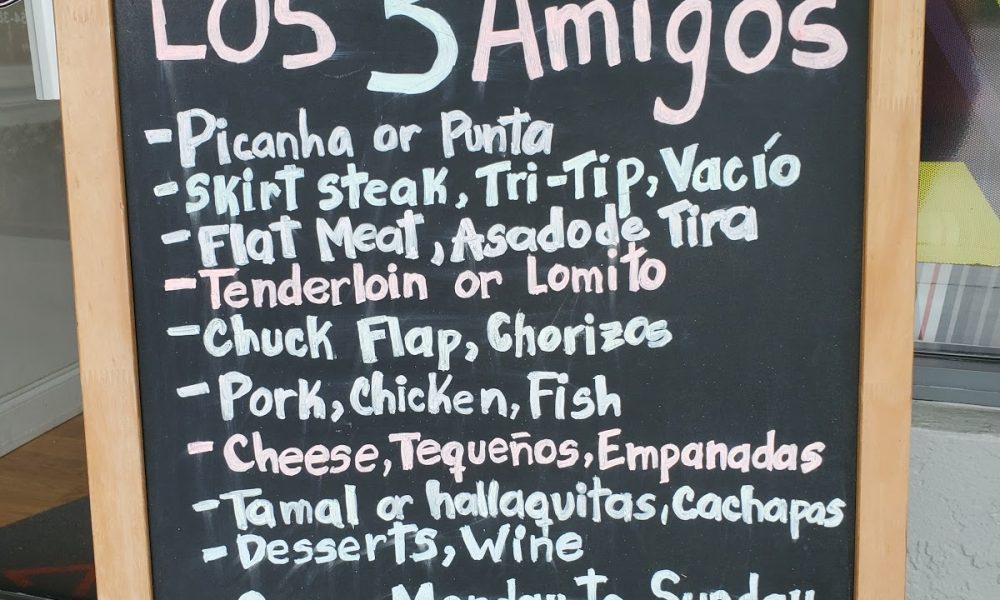 Los 3 Amigos
-Picanha or Punta
-Skirt steak, Tri-Tip, Vacío
-Flat Meat, Asado de Tira
-Tenderloin or Lomito
-Chuck Flap, Chorizos
-Pork, Chicken, Fish
-Cheese, Tequeños, Empanadas
-Tamal or hallaquitas, Cachapas
-Desserts, Wine
Monday to Sunday